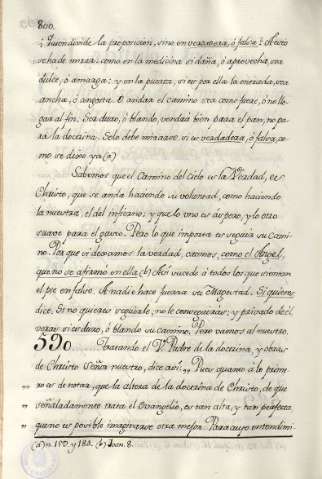 800.
¿Quien divide la proposicion, sino en verdadera, ó falsa? A esto
se ha de mirar: como en la medicina si daña, ó aprovecha, sea
dulce, ó amarga: y en la puerta, si es por ella la entrada, sea
ancha, ó angosta. O andar el camino sea como fuere, ó no lle
gar al fin. Sea duro, ó blando, vendrá bien para el pan, no pa
ra la doctrina. Solo debe mirarse, si es verdadera, ó falsa, co
mo se dixo ya (a)
Sabemos que el Camino del Cielo es la Verdad, es
Christo, que se anda haciendo su voluntad, como haciendo
la nuestra, el del infierno; y que lo uno es áspero, y lo otro
suave para el gusto. Pero lo que importa es seguir su cami
no. Porque si dexamos la verdad, caemos, como el Angel,
que no se afirmó en ella (b) Asi sucede á todos los que
el pie en falso. A nadie hace fuerza su Magestad. Si quieres
dice. Si no queremos seguirle, no le conseguirémos; y privado de él
verás si es duro, ó blando su camino. Pero vamos al nuestro.
590 Tratando el V. Padre de la doctrina, y obras
de Christo Señor nuestro, dice asi: „ Pues quanto á lo prime
„ ro es de notar, que la alteza de la doctrina de Christo, de que
„ señaladamente trata el Evangelio, es tan alta, y tan perfecta
„ que no es posible imaginarse otra mejor. Para cuyo entendimi
(a) n. 159. y 180. (b) Joan. 8.